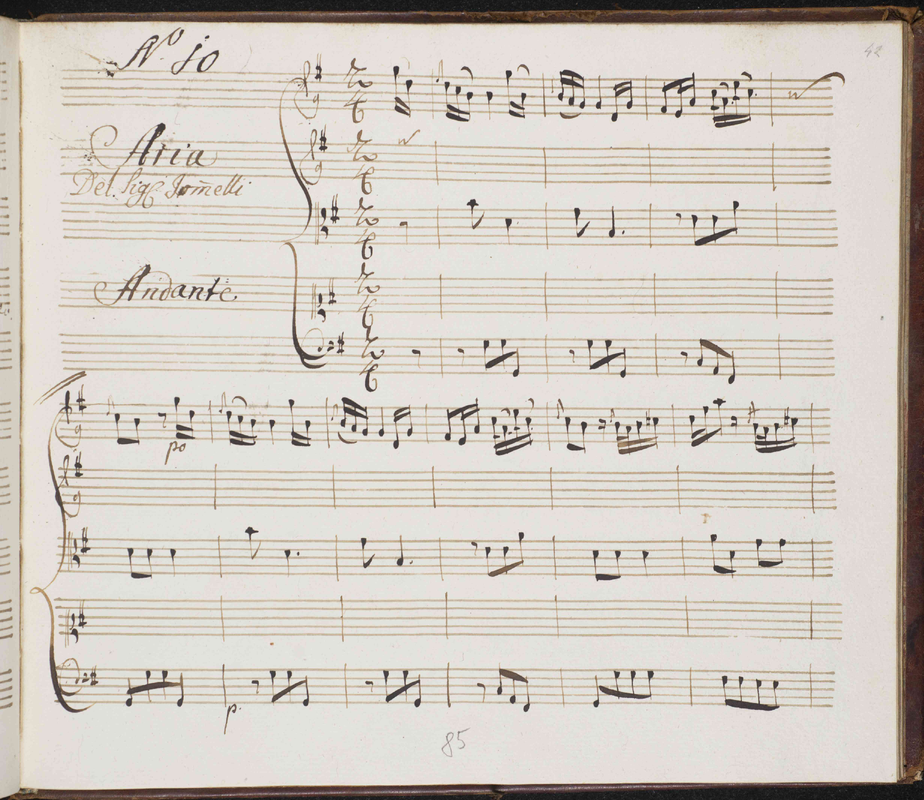 No. 10
42
Aria
Del Sigr Jom̄elli
Andante
po
p.
85